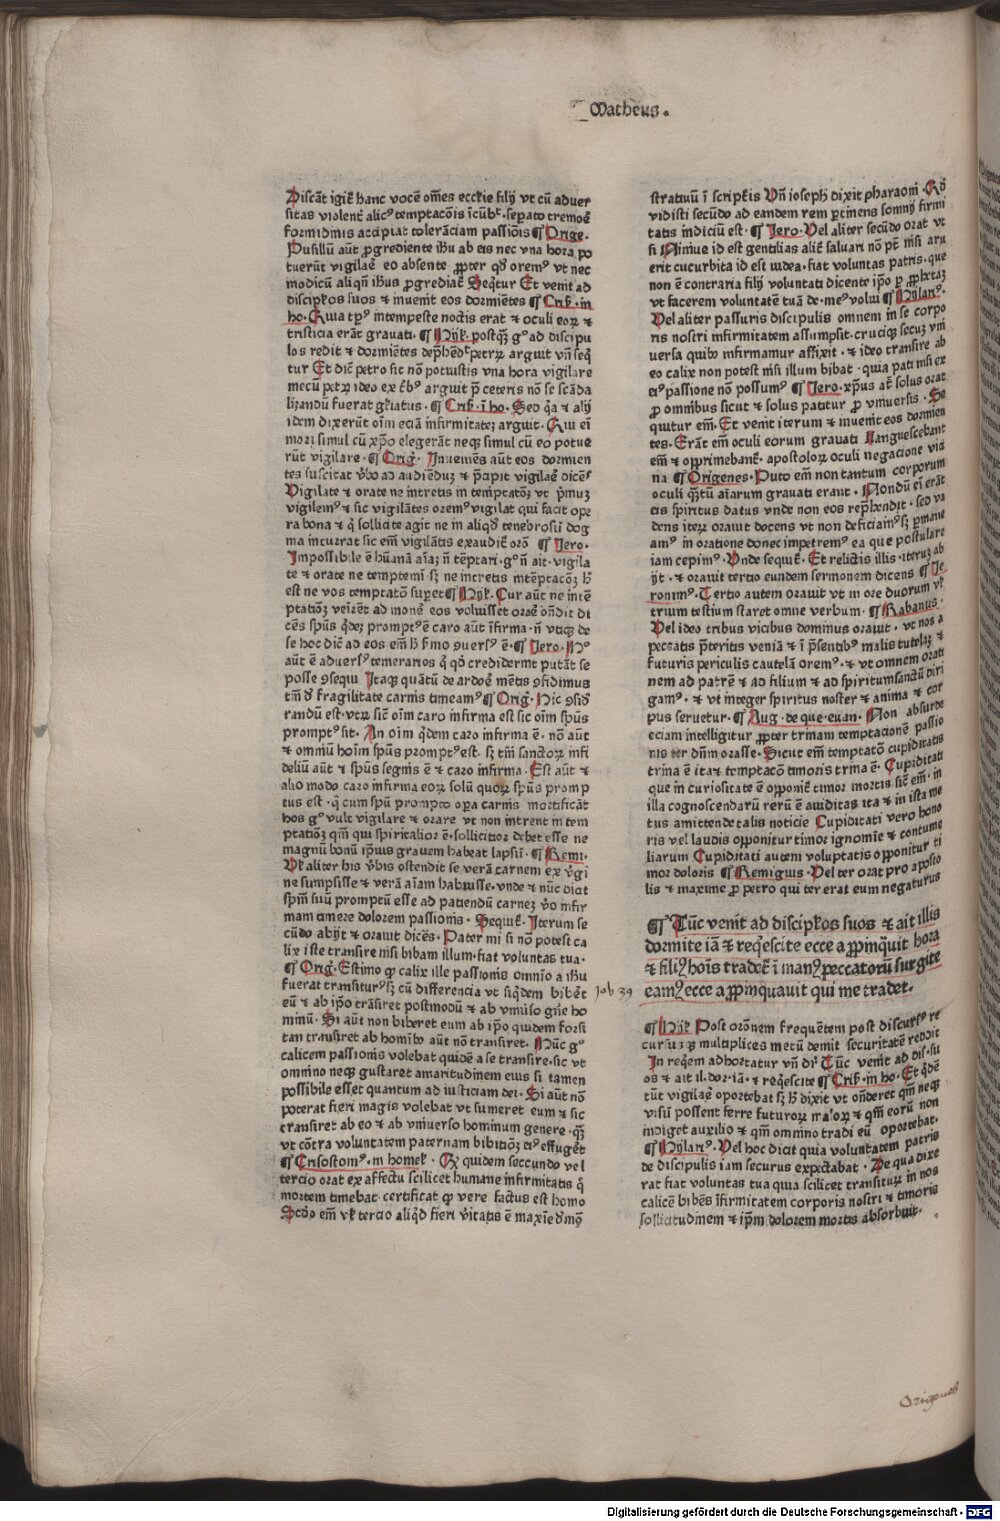 Matheus.
Discāt igit᷑ hanc vocē om̄es ecclie filij vt cū aduer
sitas violent᷑ alic⁹ temptacōis īcūb᷑t · sepato tremore
formidinis accipiat tolerāciam passiōis ¶ Orige.
Pusillū aūt ꝓgrediente ihu ab eis nec vna hora po
tuerūt vigilaē eo absente ꝓpter qd̄ orem⁹ vt nec
modicū aliqn̄ ihus ꝓgrediat᷑ Seq̄tur Et venit ad
discipĺos suos ⁊ inuenit eos dormiētes ¶ Crisˀ · in
ho. Quia tp̄s intempeste noctis erat ⁊ oculi eoꝝ ⁊
tristicia erāt grauati · ¶ Hijlˀ. postqȝ g° ad discipu
los redit ⁊ dormiētes dep̄hēd᷑t petrū arguit vn̄ seq̄
tur Et dic̄ petro sic nō potuistis vna hora vigilare
mecū petrū ideo ex t᷑b⁹ arguit p̄ ceteris nō se scāda
lizandū fuerat gl̄iatus · ¶ Crisˀ · ī ho. Sed q̄a ⁊ alij
idem dixerūt oīm eciā infirmitatēȝ arguit. Qui ei
mori simul cū xp̄o elegerāt necȝ simul cū eo potue
rūt vigilare · ¶ Orig̅. Inueniēs aūt eos dormien
tes suscitat v̄bo ad audiēdūȝ ⁊ p̄cipit vigilaē dicēs
Vigilate ⁊ orate ne intretis in temptatōȝ vt p̄muȝ
vigilem⁹ ⁊ sic vigilātes orem⁹ vigilat qui facit ope
ra bona ⁊ q̄ sollicite agit ne in aliqd̄ tenebrosū dog
ma incurrat sic em̄ vigilātis exaudit᷑ orō ¶ Jero.
Impossibile ē hūanā aīaȝ n̄ tēptari · g° n̄ ait · vigila
te ⁊ orate ne temptemi sȝ ne intretis in tēptacōȝ h̄
est ne vos temptatō supet ¶ Hijlˀ. Cur aūt ne intē
ptatiōȝ veirēt ad monē eos voluisset oraē on̄dit di
cēs spūs q̄deȝ prompt⁹ ē caro aūt īfirma · n̄ vtiqȝ de
se hoc dic̄ ad eos em̄ h̄ s̄mo ꝯuers⁹ ē · ¶ Jero. H°
aūt ē aduers⁹ temerarios q̄ qd̄ crediderint putāt se
posse ꝯsequi Itaqȝ quātū de ardoē mētis ꝯfidimus
tm̄ d̄ fragilitate carnis timeam⁹ ¶ Orig̅. Hic ꝯsid̄
randū est · vtꝝ sic̄ oīm caro infirma est sic oīm spūs
prompt⁹ sit. An oīm q̄dem caro infirma ē · nō aūt
⁊ omniū hoīm spūs prompt⁹ est. sȝ tm̄ sanctoꝝ infi
deliū aūt ⁊ spūs segnis ē ⁊ caro infirma. Est aūt ⁊
alio modo caro infirma eoꝝ solū quoꝝ spūs promp
tus est · q̄ cum spū prompto oꝑa carnis mortificāt
hos g° vult vigilare ⁊ orare vt non intrent in tem
ptatiōȝ qm̄ qui spiritalior ē · sollicitior debet esse ne
magnū bonū ip̄ius grauem habeat lapsū. ¶ Remi.
Vl̄ aliter his v̄bis ostendit se verā carnem ex v̄gi
ne sumpsisse ⁊ verā aīam habuisse · vnde ⁊ nūc dicit
spm̄ suū promptū esse ad patiendū carneȝ v̄o infir
mam timere dolorem passionis. Sequit᷑ · Iterum se
cūdo abijt ⁊ orauit dicēs · Pater mi si nō potest ca
lix iste transire nisi bibam illum · fiat voluntas tua ·
¶ Orig̅. Estimo ꝙ calix ille passionis omnīo a ihu
fuerat transitur⁹ sȝ cū differencia vt siq̄dem biberet
eū ⁊ ab ip̄o trāsiret postmodū ⁊ ab vniūso gn̄e ho
minū. Si aūt non biberet eum ab ip̄o quidem forsi
tan transiret ab homībȝ aūt nō transiret. Nūc g°
calicem passionis volebat quidē a se transire · sic vt
omnino neqȝ gustaret amaritudinem eius si tamen
possibile esset quantum ad iusticiam dei · Si aūt nō
poterat fieri magis volebat vt sumeret eum ⁊ sic
transiret ab eo ⁊ ab vniuerso hominum genere · qȝ
vt cōtra voluntatem paternam bibitiōȝ ei⁹ effuget
¶ Crisostom⁹ · in homel᷑ · Qd̄ quidem secundo vel
tercio orat ex affectu scilicet humane infirmitatis q̄
mortem timebat · certificat ꝙ vere factus est homo
Scdo em̄ vl̄ tercio aliqd̄ fieri v̄itatis ē maxīe d̄mo
stratiuū ī scriptˀis Vn̄ ioseph dixit pharaoni · Qd̄
vidisti secūdo ad eandem rem ꝑtinens somnij firmi
tatis indiciū est · ¶ Jero. Vel aliter secūdo orat vt
si Niniue id est gentilitas alit᷑ saluari nō pt̄ nisi aru
erit cucurbita id est iudea · fiat voluntas patris · que
non ē contraria filij voluntati dicente ip̄o ꝑ ꝓphetaȝ
vt facerem voluntatē tuā de⁹ me⁹ volui ¶ Hylari⁹.
Vel aliter passuris discipulis omnem in se corpo
ris nostri infirmitatem assumpsit · cruciqȝ secuȝ vni
uersa quibȝ infirmamur affixit · ⁊ ideo transire ab
eo calix non potest nisi illum bibat · quia pati nisi ex
ei⁹ passione nō possum⁹ ¶ Jero. xp̄us at̄ solus orat
ꝓ omnibus sicut ⁊ solus patitur ꝓ vniuersis · Se
quitur em̄. Et venit iterum ⁊ inuenit eos dormien
tes. Erāt em̄ oculi eorum grauati Languescebant
em̄ ⁊ opprimebant᷑ · apostoloꝝ oculi negacione vici
na ¶ Origenes. Puto em̄ non tantum corporum
oculi q̄tū aīarum grauati erant · Nondū ei erāt
eis spiritus datus vnde non eos rep̄hendit · sed va
dens iteꝝ orauit docens vt non deficiam⁹ sȝ ꝑmane
am⁹ in oratione donec impetrem⁹ ea que postulare
iam cepim⁹. Vnde sequit᷑. Et relictis illis · iteruȝ ab
ijt · ⁊ orauit tertio eundem sermonem dicens ¶ Je
ronim⁹. Tertio autem orauit vt in ore duorum vl̄
trium testium staret omne verbum. ¶ Rabanus.
Vel ideo tribus vicibus dominus orauit · vt nos a
peccatis p̄teritis veniā ⁊ ī p̄sentibȝ malis tutelaȝ ⁊
futuris periculis cautelā orem⁹ · ⁊ vt omnem orati
nem ad patrē ⁊ ad filium ⁊ ad spiritum sanctū diri
gam⁹ · ⁊ vt integer spiritus noster ⁊ anima ⁊ cor
pus seruetur. ¶ Aug. de que · euan. Non absurde
eciam intelligitur ꝓpter trinam temptacionē passio
nis ter dn̄m orasse. Sicut em̄ temptatō cupiditatis
trina ē ita ⁊ temptacō timoris trina ē · Cupiditati
que in curiositate ē opponit᷑ timor mortis sic̄ em̄ · in
illa cognoscendarū rerū ē auiditas ita ⁊ in ista me
tus amittende talis noticie Cupiditati vero hono
ris vel laudis opponitur timor ignomīe ⁊ contume
liarum Cupiditati autem voluptatis opponitur ti
mor doloris ¶ Remigius. Vel ter orat pro aposto
lis ⁊ maxime ꝓ petro qui ter erat eum negaturus
¶ Tūc venit ad discipĺos suos ⁊ ait illis
dormite iā ⁊ req̄escite ecce aꝓpinq̄uit hora
⁊ fili⁹ hoīs tradet᷑ ī man⁹ peccatorū surgite
eam⁹ ecce aꝓpinquauit qui me tradet.
Job 39
¶ Hijlˀ Post orōnem frequētem post discurs⁹ re
cursusqȝ multiplices metū demit securitatē reddit
In req̄em adhortatur vn̄ dr̄ Tūc venit ad dis · su
os ⁊ ait il. dor · iā · ⁊ req̄escite ¶ Crisˀ · in ho. Et q̄dē
tūc vigilaē oportebat sȝ h̄ dixit vt on̄deret qm̄ neqȝ
visū possent ferre futuroꝝ maloꝝ ⁊ qm̄ eorū non
indiget auxilio ⁊ qm̄ omnino tradi eū oportebat.
¶ Hylari⁹. Vel hoc dicit quia voluntatem patris
de discipulis iam securus expectabat · De qua dixe
rat fiat voluntas tua quia scilicet transitur⁹ in nos
calicē bibēs īfirmitatem corporis nostri ⁊ timoris
sollicitudinem ⁊ ip̄m dolorem mortis absorbuit.
Origenes
Digitalisierung gefördert durch die Deutsche Forschungsgemeinschaft - DFG